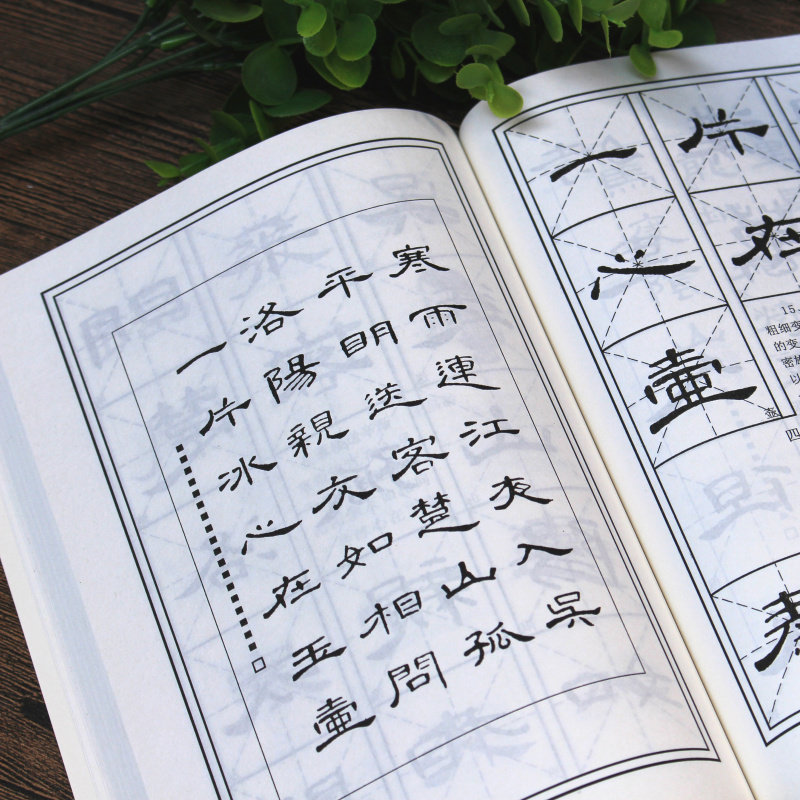 寒雨連江夜入吳
平明送客楚山孤
洛陽親友如相問
一片冰心在玉壺
片在
一心壺
壶
15.
粗细变
的变
密
以
四